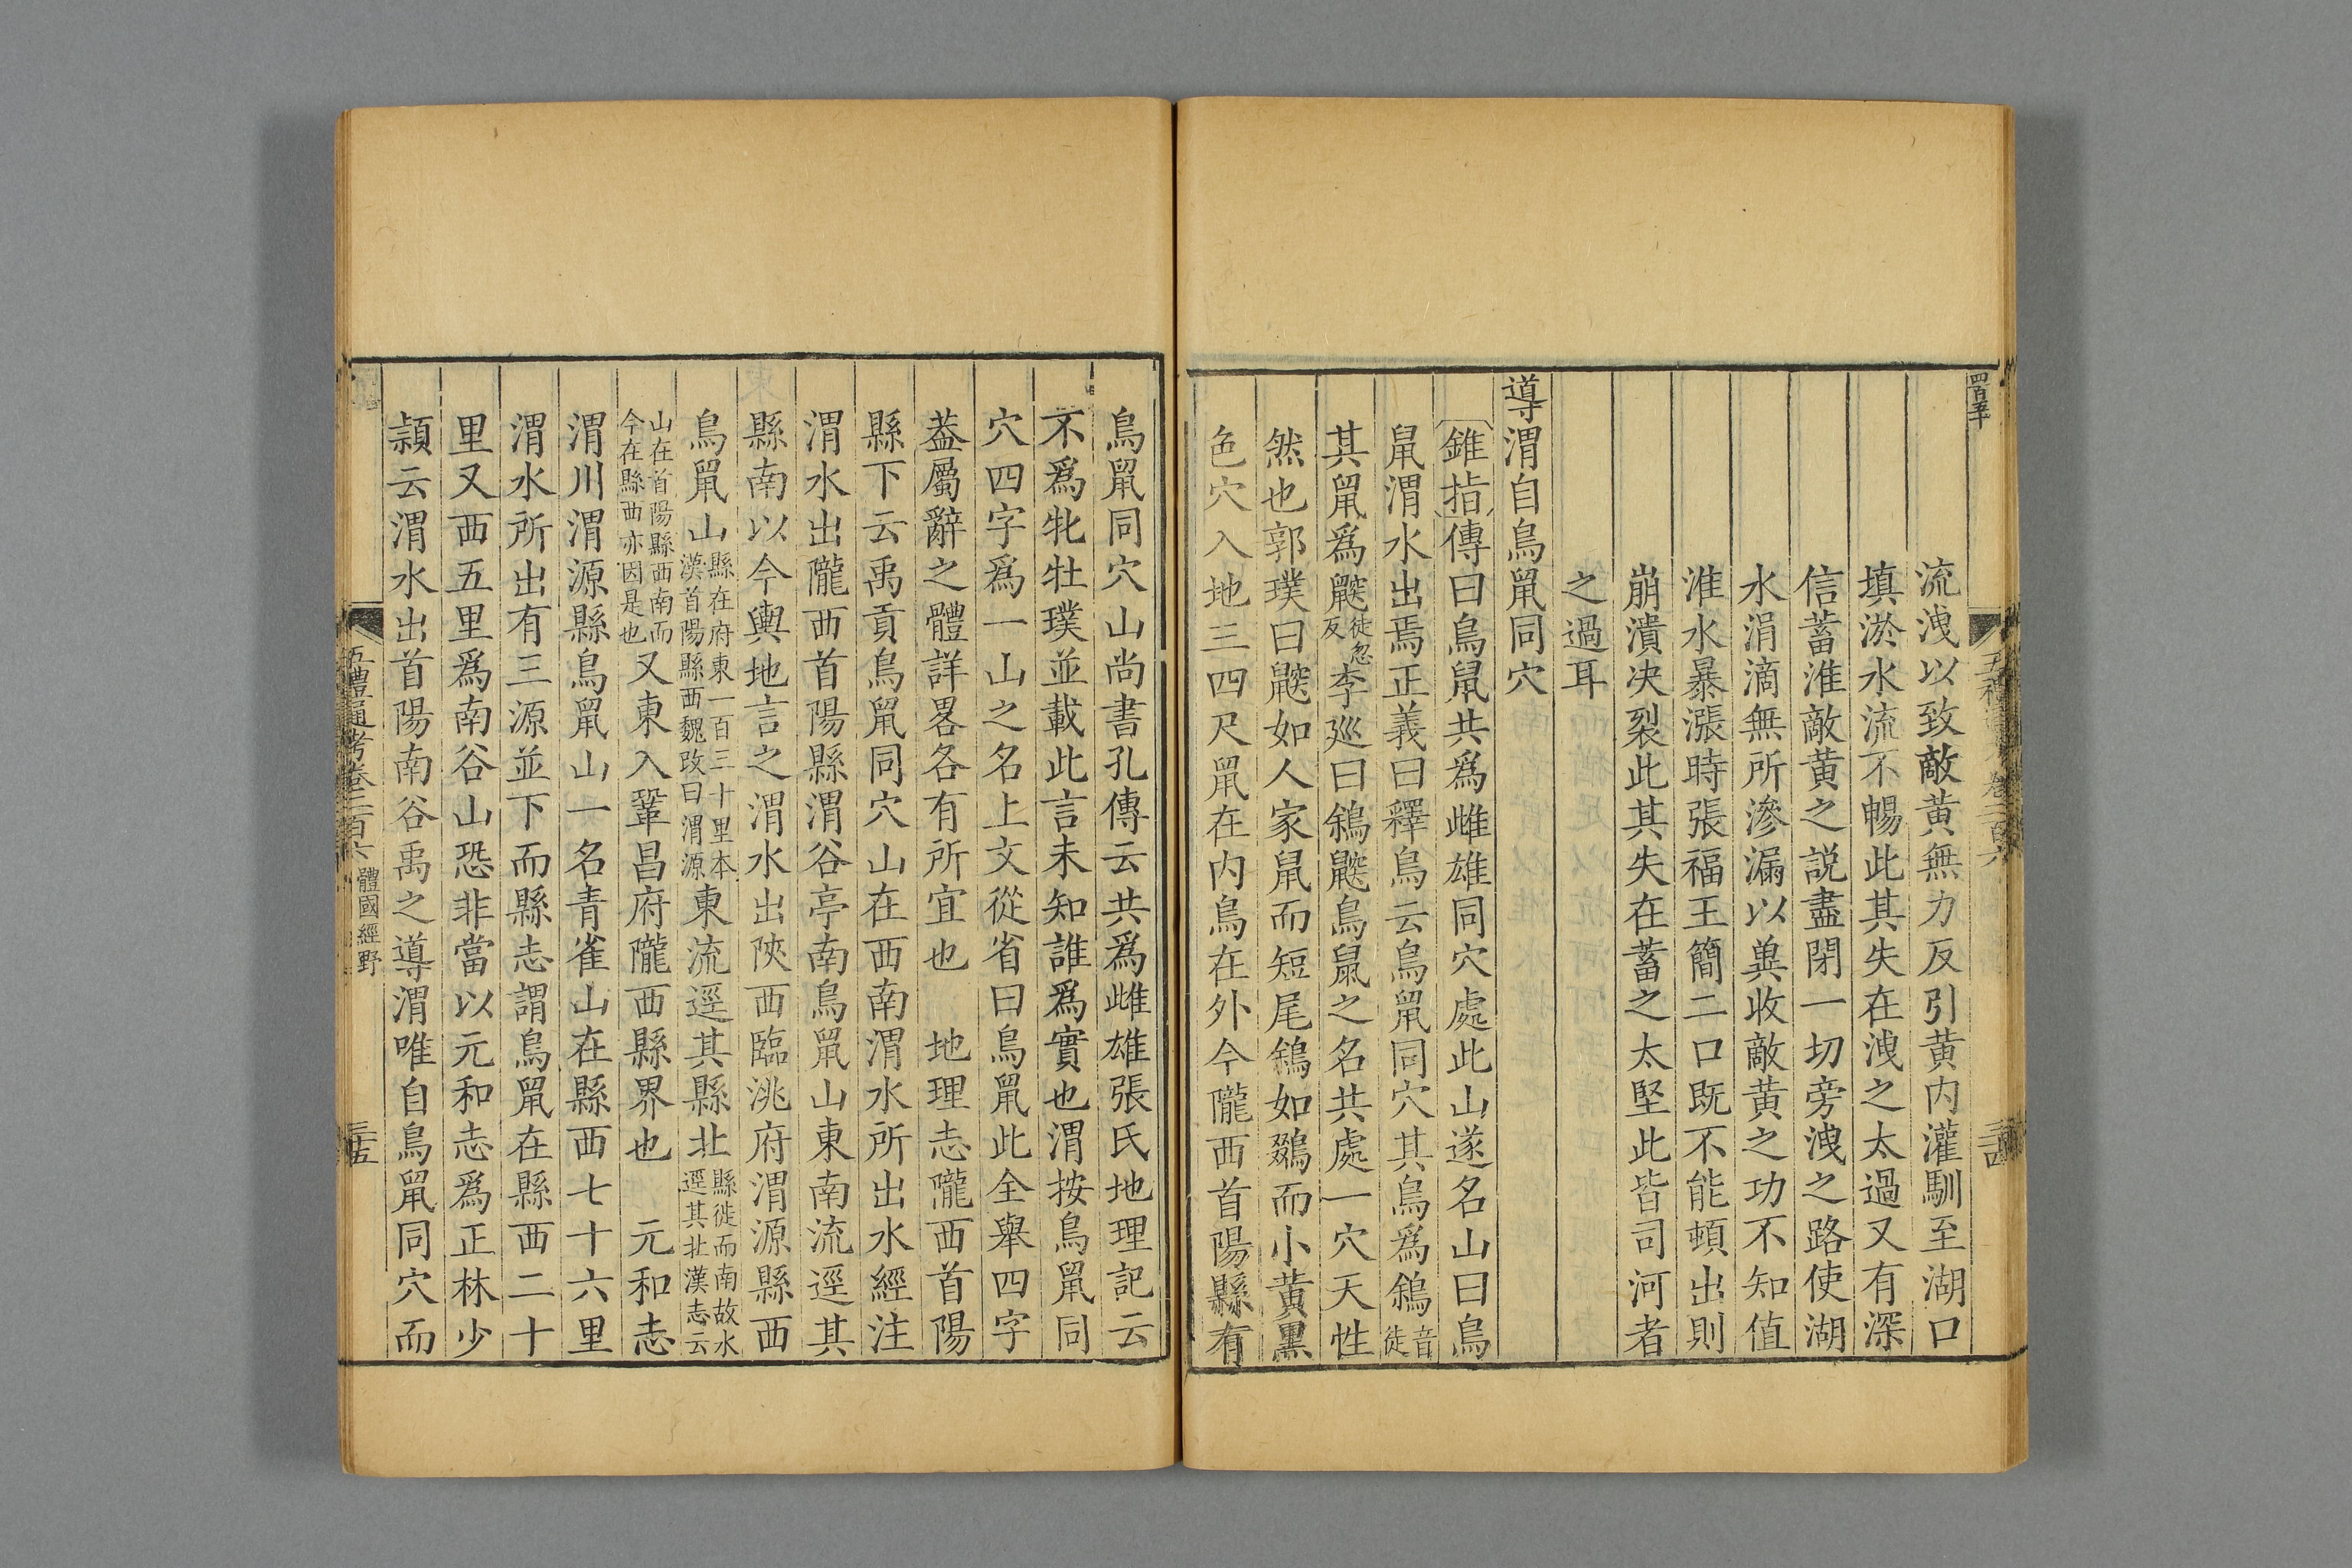 四百五十
五禮通考卷二百六
三四
流洩以致敵黄無力反引黄内灌馴至湖口
填淤水流不暢此其失在洩之太過又有深
信蓄淮敵黄之説盡閉一切旁洩之路使湖
水涓滴無所滲漏以兾收敵黄之功不知值
淮水暴漲時張福王簡二口既不能頓出則
崩潰決裂此其失在蓄之太堅此皆司河者
之過耳
導渭自鳥鼠同穴
錐指傳曰鳥鼠共爲雌雄同穴處此山遂名山曰鳥
鼠渭水出焉正義曰釋鳥云鳥鼠同穴其鳥爲鵌音徒
其鼠爲鼵徒忽反李巡曰鵌鼵鳥鼠之名共處一穴天性
然也郭璞曰鼵如人家鼠而短尾鵌如鵽而小黄黒
色穴入地三四尺鼠在内鳥在外今隴西首陽縣有
鳥鼠同穴山尚書孔傳云共爲雌雄張氏地理記云
不爲牝牡璞並載此言未知誰爲實也渭按鳥鼠同
穴四字爲一山之名上文從省曰鳥鼠此全舉四字
葢屬辭之體詳畧各有所宜也　地理志隴西首陽
縣下云禹貢鳥鼠同穴山在西南渭水所出水經注
渭水出隴西首陽縣渭谷亭南鳥鼠山東南流逕其
縣南以今輿地言之渭水出陝西臨洮府渭源縣西
鳥鼠山縣在府東一百三十里本漢首陽縣西魏改曰渭源東流逕其縣北縣徙而南故水逕其北漢志云
山在首陽縣西南而今在縣西亦因是也又東入鞏昌府隴西縣界也　元和志
渭川渭源縣鳥鼠山一名青雀山在縣西七十六里
渭水所出有三源並下而縣志謂鳥鼠在縣西二十
里又西五里爲南谷山恐非當以元和志爲正林少
頴云渭水出首陽南谷禹之導渭唯自鳥鼠同穴而
五禮通考卷二百六　體國經野
三五